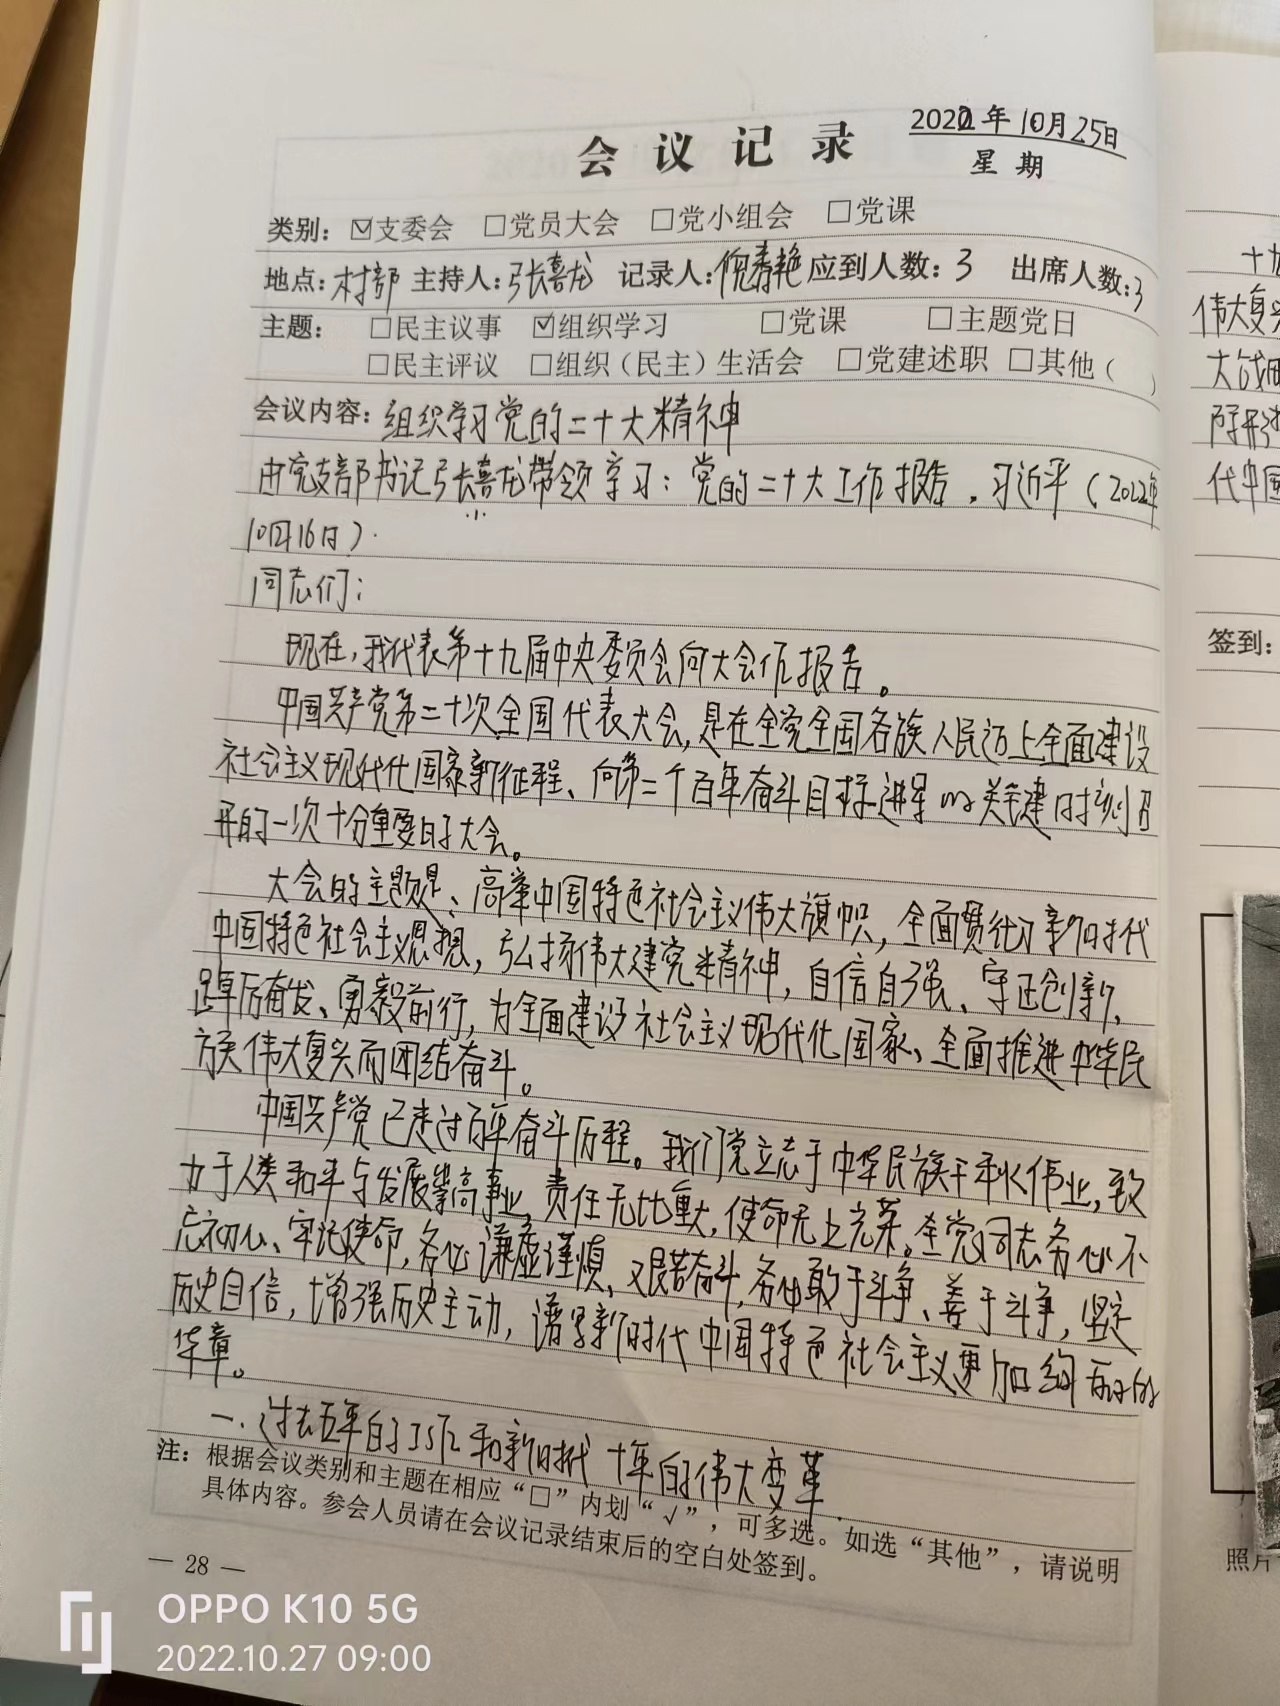 会议记录
2022年10月25日
星期
类别：☑支委会 □党员大会 □党小组会 □党课
地点：村部 主持人：张喜龙 记录人：倪春艳 应到人数：3 出席人数：3
主题： □民主议事 ☑组织学习 □党课 □主题党日
□民主评议 □组织（民主）生活会 □党建述职 □其他（ ）
会议内容：组织学习党的二十大精神
由党支部书记张喜龙带领学习：党的二十大工作报告，习近平（2022年
10月16日）.
同志们：
现在，我代表第十九届中央委员会向大会作报告。
中国共产党第二十次全国代表大会，是在全党全国各族人民迈上全面建设
社会主义现代化国家新征程、向第二个百年奋斗目标进军的关键时刻召
开的一次十分重要的大会。
大会的主题是：高举中国特色社会主义伟大旗帜，全面贯彻习新时代
中国特色社会主义思想，弘扬伟大建党精神，自信自强、守正创新，
踔厉奋发、勇毅前行，为全面建设社会主义现代化国家、全面推进中华民
族伟大复兴而团结奋斗。
中国共产党已走过百年奋斗历程。我们党立志于中华民族千秋伟业，致
力于人类和平与发展崇高事业，责任无比重大，使命无上光荣。全党同志务必不
忘初心、牢记使命，务必谦虚谨慎、艰苦奋斗，务必敢于斗争、善于斗争，坚定
历史自信，增强历史主动，谱写新时代中国特色社会主义更加绚丽的
华章。
一.过去五年的工作和新时代十年的伟大变革.
注：根据会议类别和主题在相应“□”内划“√”，可多选。如选“其他”，请说明
具体内容。参会人员请在会议记录结束后的空白处签到。
— 28 —
伟大复兴
代中国
签到：
照片
OPPO K10 5G
2022.10.27 09:00